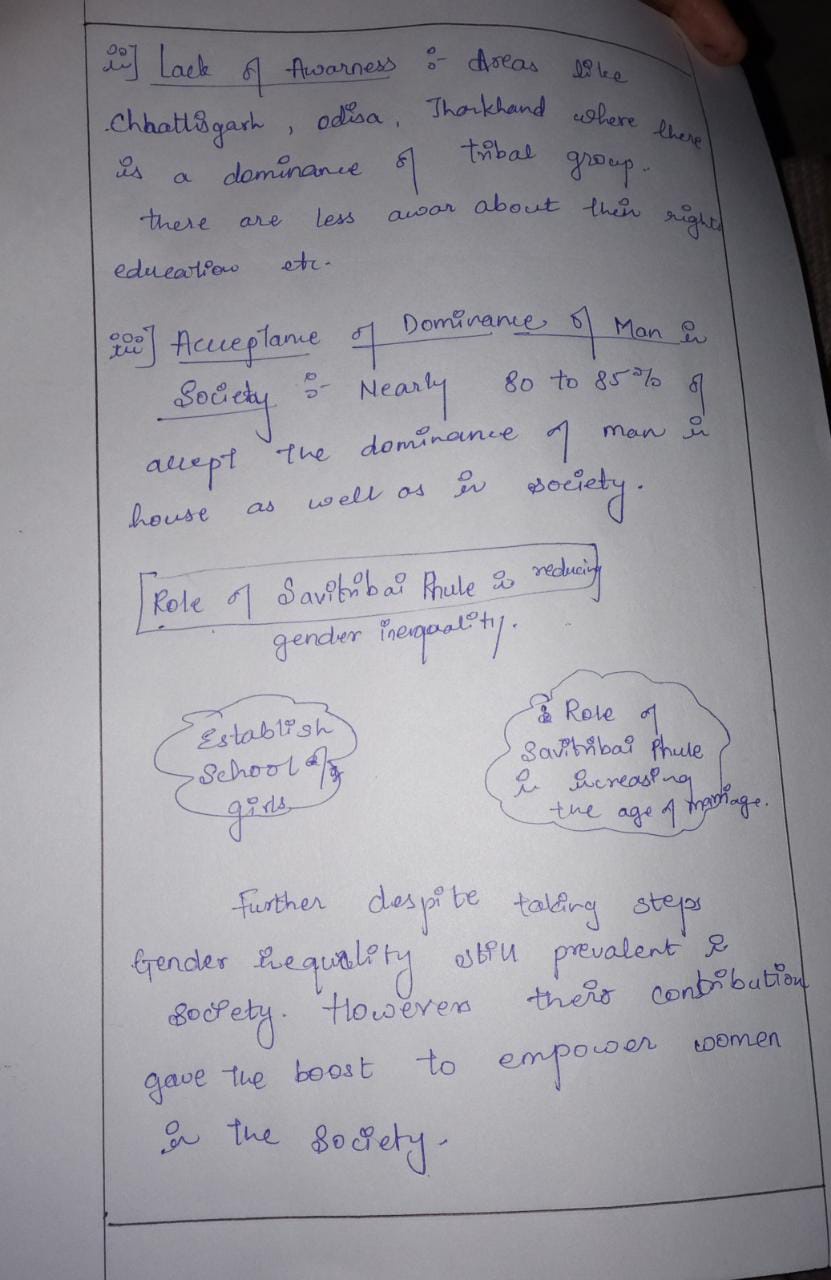 ii] Lack of Awarness :- Areas like
Chhattisgarh, odisa, Jharkhand where there
is a dominance of tribal group.
there are less awar about their rights
education etc.
iii] Acceptance of Dominance of Man in
Society :- Nearly 80 to 85% of
accept the dominance of man in
house as well as in society.
Role of Savitribai Phule in reducing
gender inequality.
Establish
School of
girls
Role of
Savitribai Phule
in increasing
the age of marriage.
Further despite taking steps
Gender inequality still prevalent in
society. However their contribution
gave the boost to empower women
in the society.